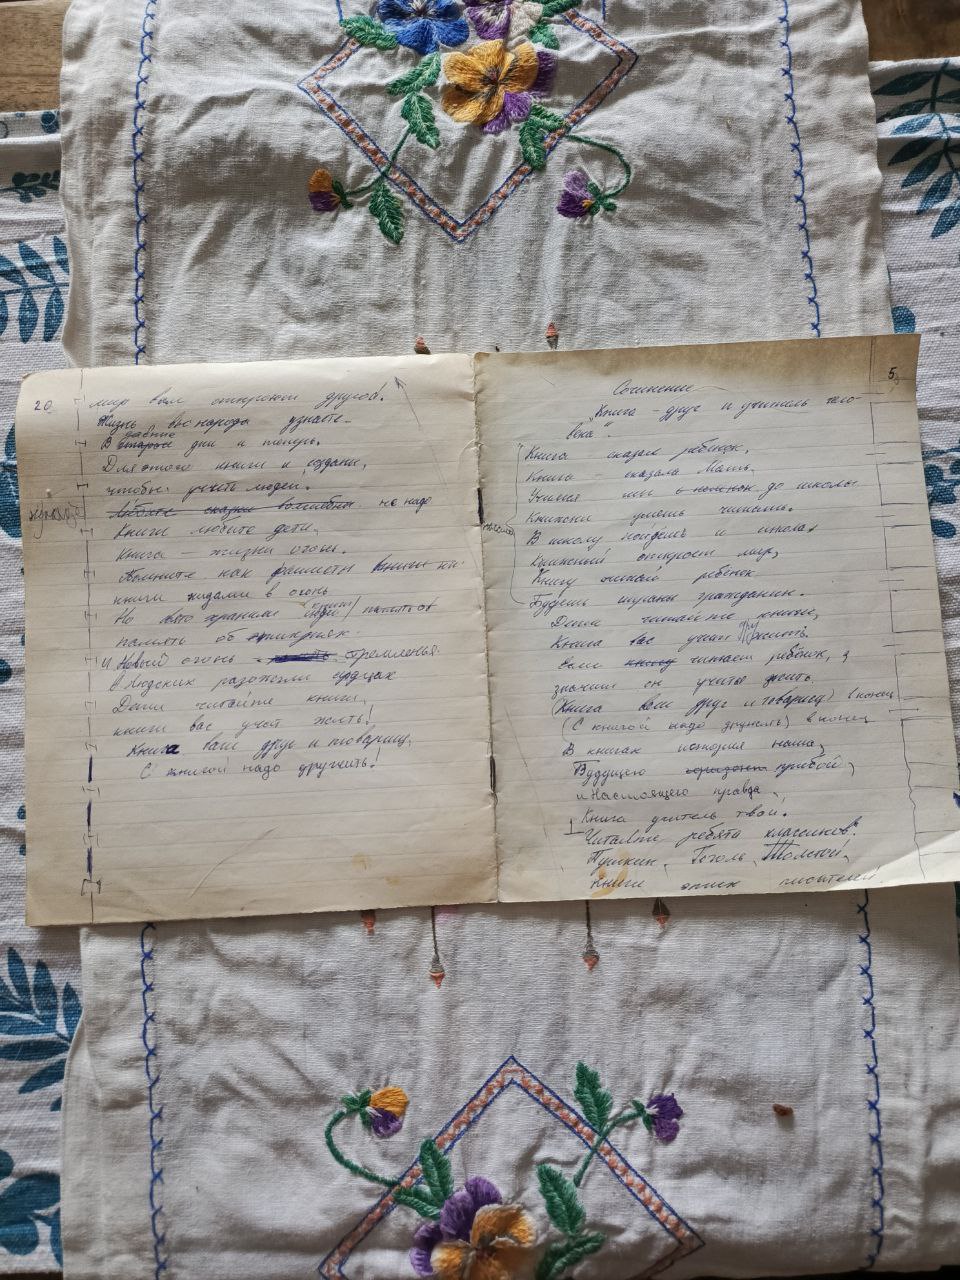 20
мир вам откроют другой.
Жизнь
народа узнаете.
В старые давние дни и теперь.
Для этого книги и созданы,
чтобы учить людей.
не надо
Книги любите дети,
Книга – жизни огонь.
Помните как фашисты
книги кидали в огонь
Но
хранили
память об
И Новый огонь стремленья
в людских разожгли сердцах
Дети читайте книги,
книги вас учат жить!
Книга ваш друг и товарищ,
С книгой надо дружить!
5
Сочинение
"Книга – друг и учитель чело-
века".
Книга – сказал ребенок,
Книга – сказала Мать.
Учился
до школы
умеешь читать.
В школу пойдешь и
Книжный откроют мир,
Книгу читай ребенок
Будешь страны гражданин.
Дети читайте книги,
Книга вас учат жить.
Если книгу читает ребёнок,
значит он учится жить.
(Книга ваш друг и товарищ) в конец
(С книгой надо дружить) в конец
В книгах история наша,
Будущего горизонт прибой,
и Настоящего правда,
Книга учитель твой.
Читайте ребята классиков.
Пушкин, Гоголь, Толстой,
книги
писателей